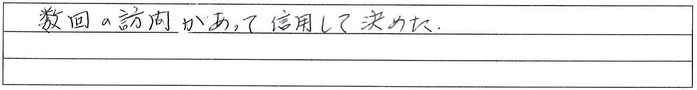 数回の訪問があって信用して決めた.